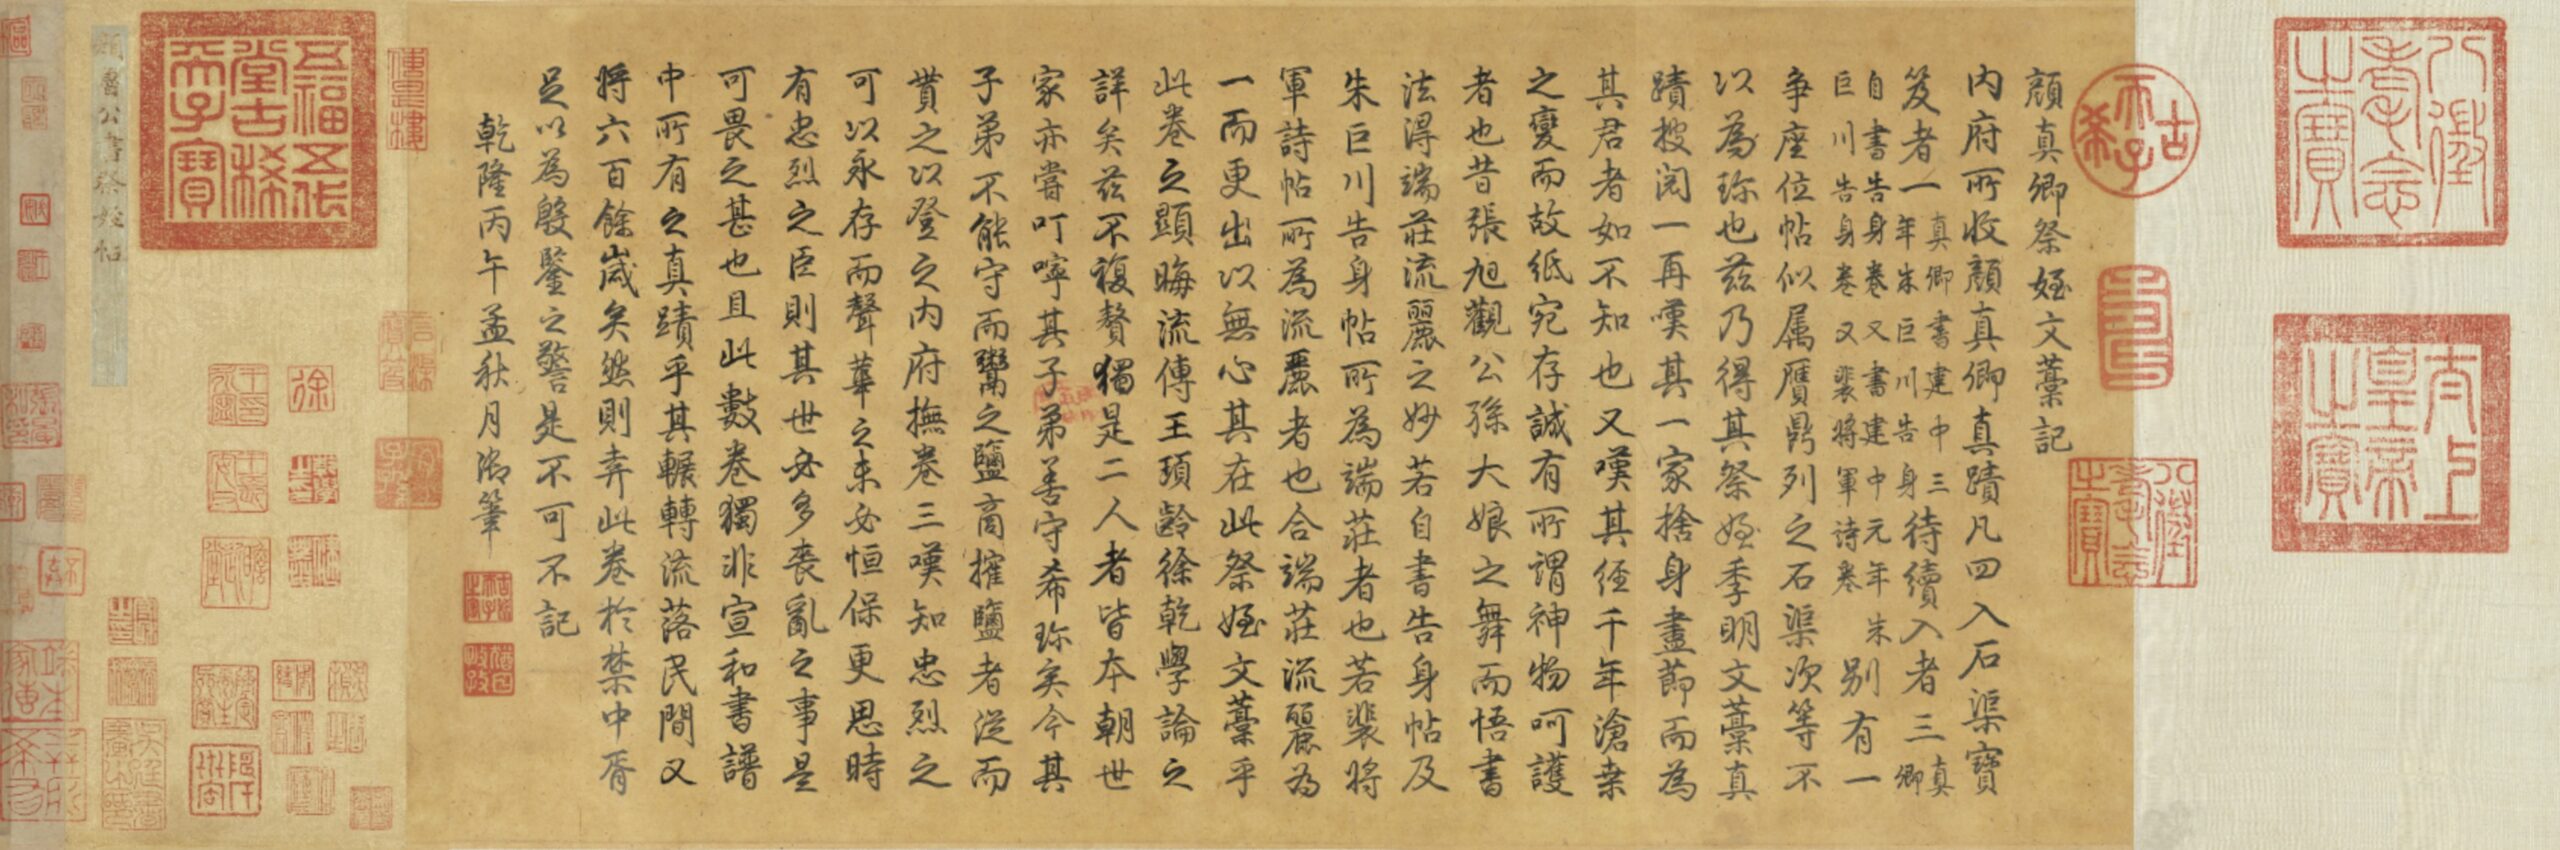 八徵耄念之寶
太上皇帝之寶
古希天子
壽
八徵耄念之寶
顏真卿祭姪文藁記
內府所收顏真卿真蹟凡四入石渠寶
笈者一真卿書建中三年朱巨川告身待續入者三真卿
自書告身卷又書建中元年朱巨川告身卷又裴將軍詩卷別有一
爭座位帖似屬贋鼎列之石渠次等不
以為珍也茲乃得其祭姪季明文藁真
蹟披閱一再嘆其一家捨身盡節而為
其君者如不知也又嘆其經千年滄桑
之變而故紙宛存誠有所謂神物呵護
者也昔張旭觀公孫大娘之舞而悟書
法得端莊流麗之妙若自書告身帖及
朱巨川告身帖所為端莊者也若裴將
軍詩帖所為流麗者也合端莊流麗為
一而更出以無心其在此祭姪文藁乎
此卷之顯晦流傳王頊齡徐乾學論之
詳矣茲不複贅獨是二人者皆本朝世
家亦嘗叮嚀其子弟善守希珍矣今其
子弟不能守而鬻之鹽商搉鹽者從而
貰之以登之內府撫卷三嘆知忠烈之
可以永存而聲華之未必恒保更思時
有忠烈之臣則其世必多喪亂之事是
可畏之甚也且此數卷獨非宣和書譜
中所有之真蹟乎其輾轉流落民間又
將六百餘歲矣然則弆此卷於禁中胥
足以為殷鑒之警是不可不記
乾隆丙午孟秋月御筆
古稀天子之寶
猶日孜孜
五福五代堂古稀天子寶
顏魯公書祭姪帖